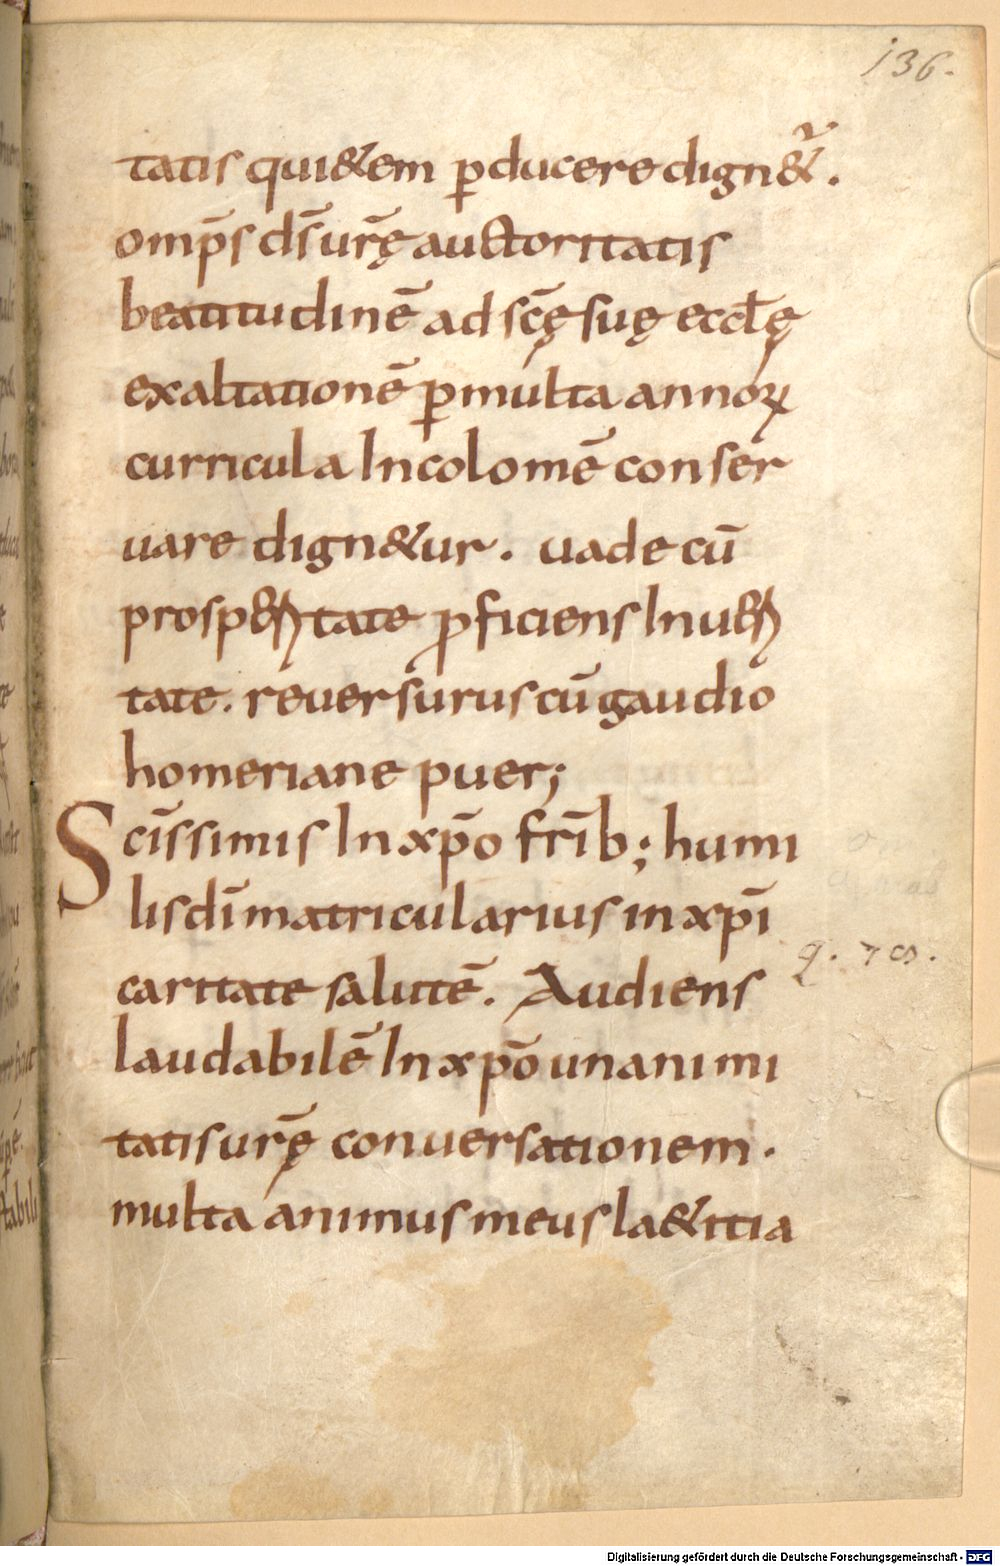 136.
tatis qui&em ꝑducere dign&ur̃.
omp̄s ds̄ ur̄ę auctoritatis
beatitudinē ad sc̄ę suę eccłę
exaltationē ꝑmulta annoꝝ
curricula Incolomē conser
uare dign&ur. uade cū
prosperitate ꝓficiens In ueri
tate. reuersurus cū gaudio
homeriane puer;
Scīssimis In xp̄o frīb; humi
lis dī matricularius in xp̄i
caritate salutē. Audiens
laudabilē In xp̄o unanimi
tatis ur̄ę conuersationem.
multa animus meus la&itia